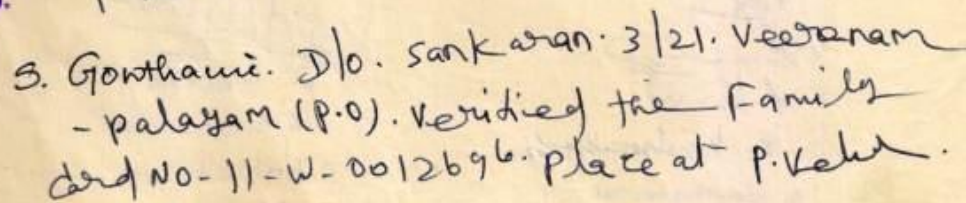 S. Gowthami. D/o. Sankaran. 3/21. Veeranam
- palayam (P.O). Verified the Family
Card No- 11-W-0012696. Place at P.Velur.